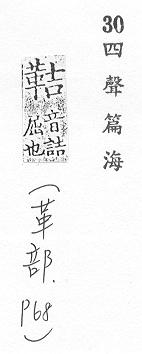 30 四聲篇海
鞊
音詰
屈也
(革部. P68)